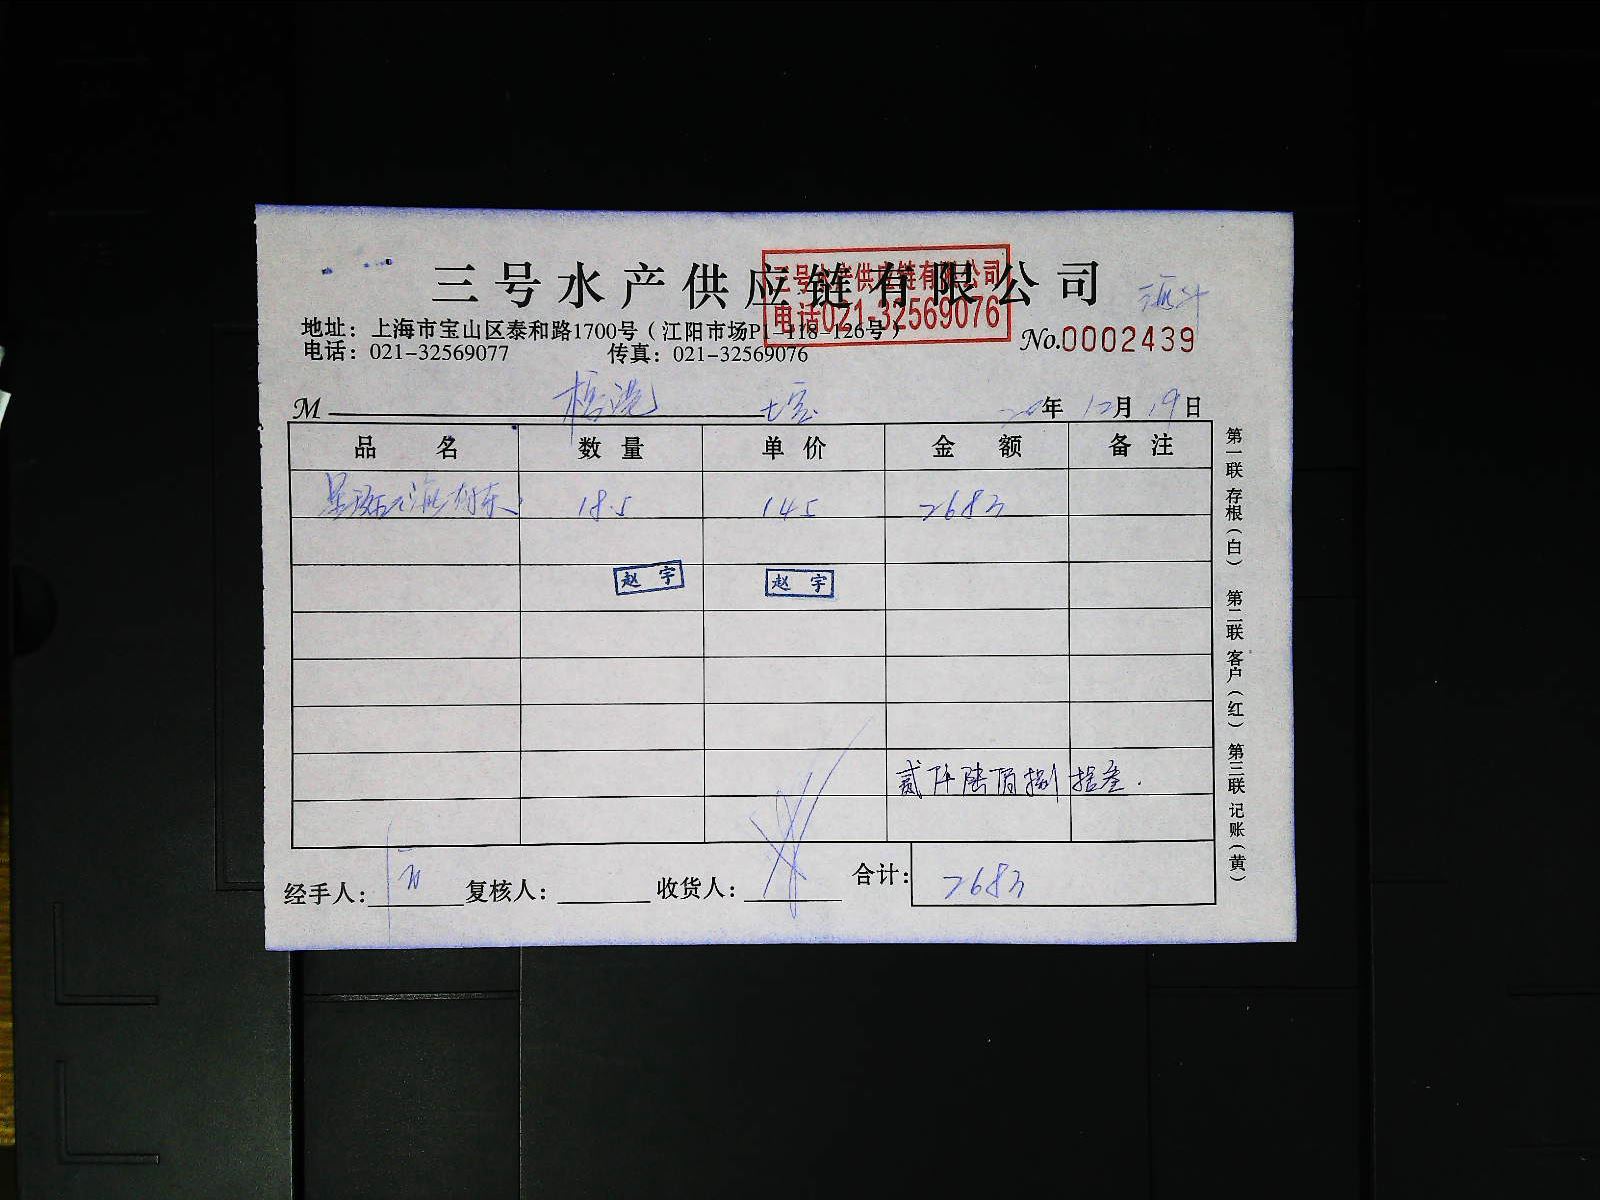 三号水产供应链有限公司
三号水产供应链有限公司
电话021-32569076
地址：上海市宝山区泰和路1700号（江阳市场P1-118-126号）
电话：021-32569077 传真：021-32569076
No.0002439
M 20年12月19日
品名 数量 单价 金额 备注
18.5 145 2683
赵宇 赵宇
贰仟陆佰捌拾叁.
经手人： 复核人： 收货人： 合计： 2683
第一联 存根（白） 第二联 客户（红） 第三联 记账（黄）